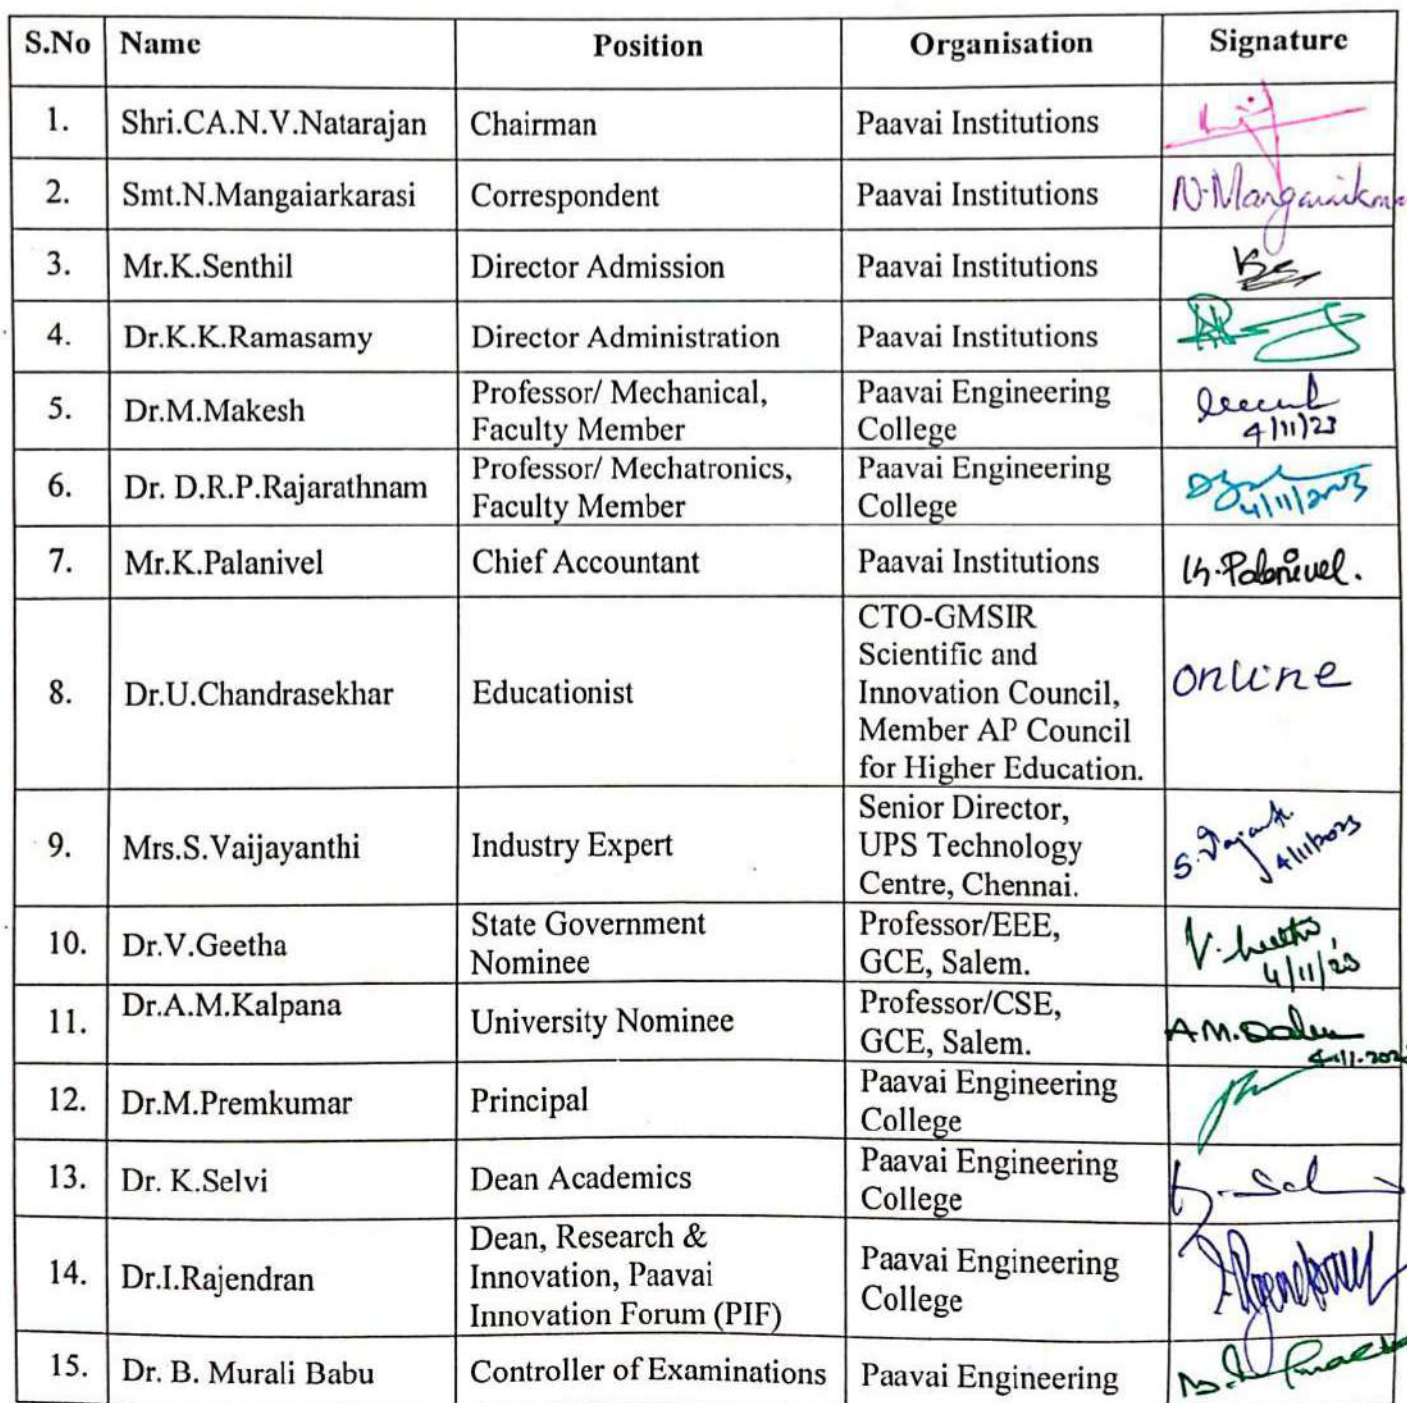 S.No Name Position Organisation Signature
1. Shri.CA.N.V.Natarajan Chairman Paavai Institutions
2. Smt.N.Mangaiarkarasi Correspondent Paavai Institutions
3. Mr.K.Senthil Director Admission Paavai Institutions
4. Dr.K.K.Ramasamy Director Administration Paavai Institutions
5. Dr.M.Makesh Professor/ Mechanical,
Faculty Member Paavai Engineering
College 4/11/23
6. Dr. D.R.P.Rajarathnam Professor/ Mechatronics,
Faculty Member Paavai Engineering
College 4/11/2023
7. Mr.K.Palanivel Chief Accountant Paavai Institutions K.Palanivel.
8. Dr.U.Chandrasekhar Educationist CTO-GMSIR
Scientific and
Innovation Council,
Member AP Council
for Higher Education. online
9. Mrs.S.Vaijayanthi Industry Expert Senior Director,
UPS Technology
Centre, Chennai. 4/11/2023
10. Dr.V.Geetha State Government
Nominee Professor/EEE,
GCE, Salem. 4/11/23
11. Dr.A.M.Kalpana University Nominee Professor/CSE,
GCE, Salem. A.M.
12. Dr.M.Premkumar Principal Paavai Engineering
College
13. Dr. K.Selvi Dean Academics Paavai Engineering
College
14. Dr.I.Rajendran Dean, Research &
Innovation, Paavai
Innovation Forum (PIF) Paavai Engineering
College
15. Dr. B. Murali Babu Controller of Examinations Paavai Engineering